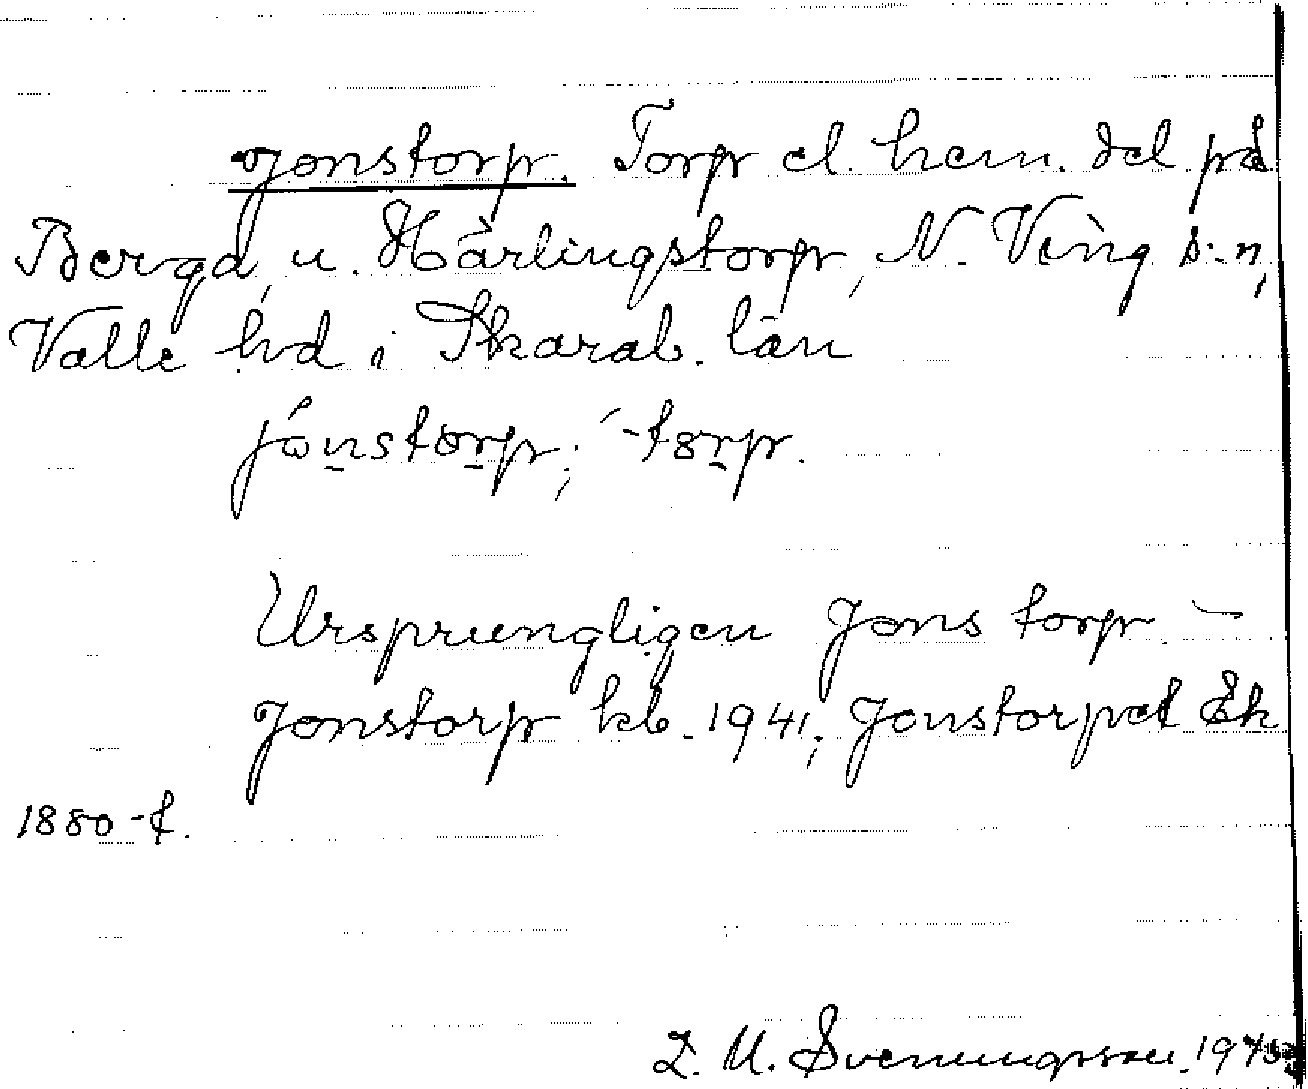 Jonstorp. Torp el. hem. del på
Bergd, u. Härlingstorp, N. Ving s:n,
Valle hd i Skarab. län
jónstorp; -torp.
Ursprungligen Jons torp. –
Jonstorp kb. 1941; Jonstorpet Ek
1880-t.
Z. M. Svenungsson.